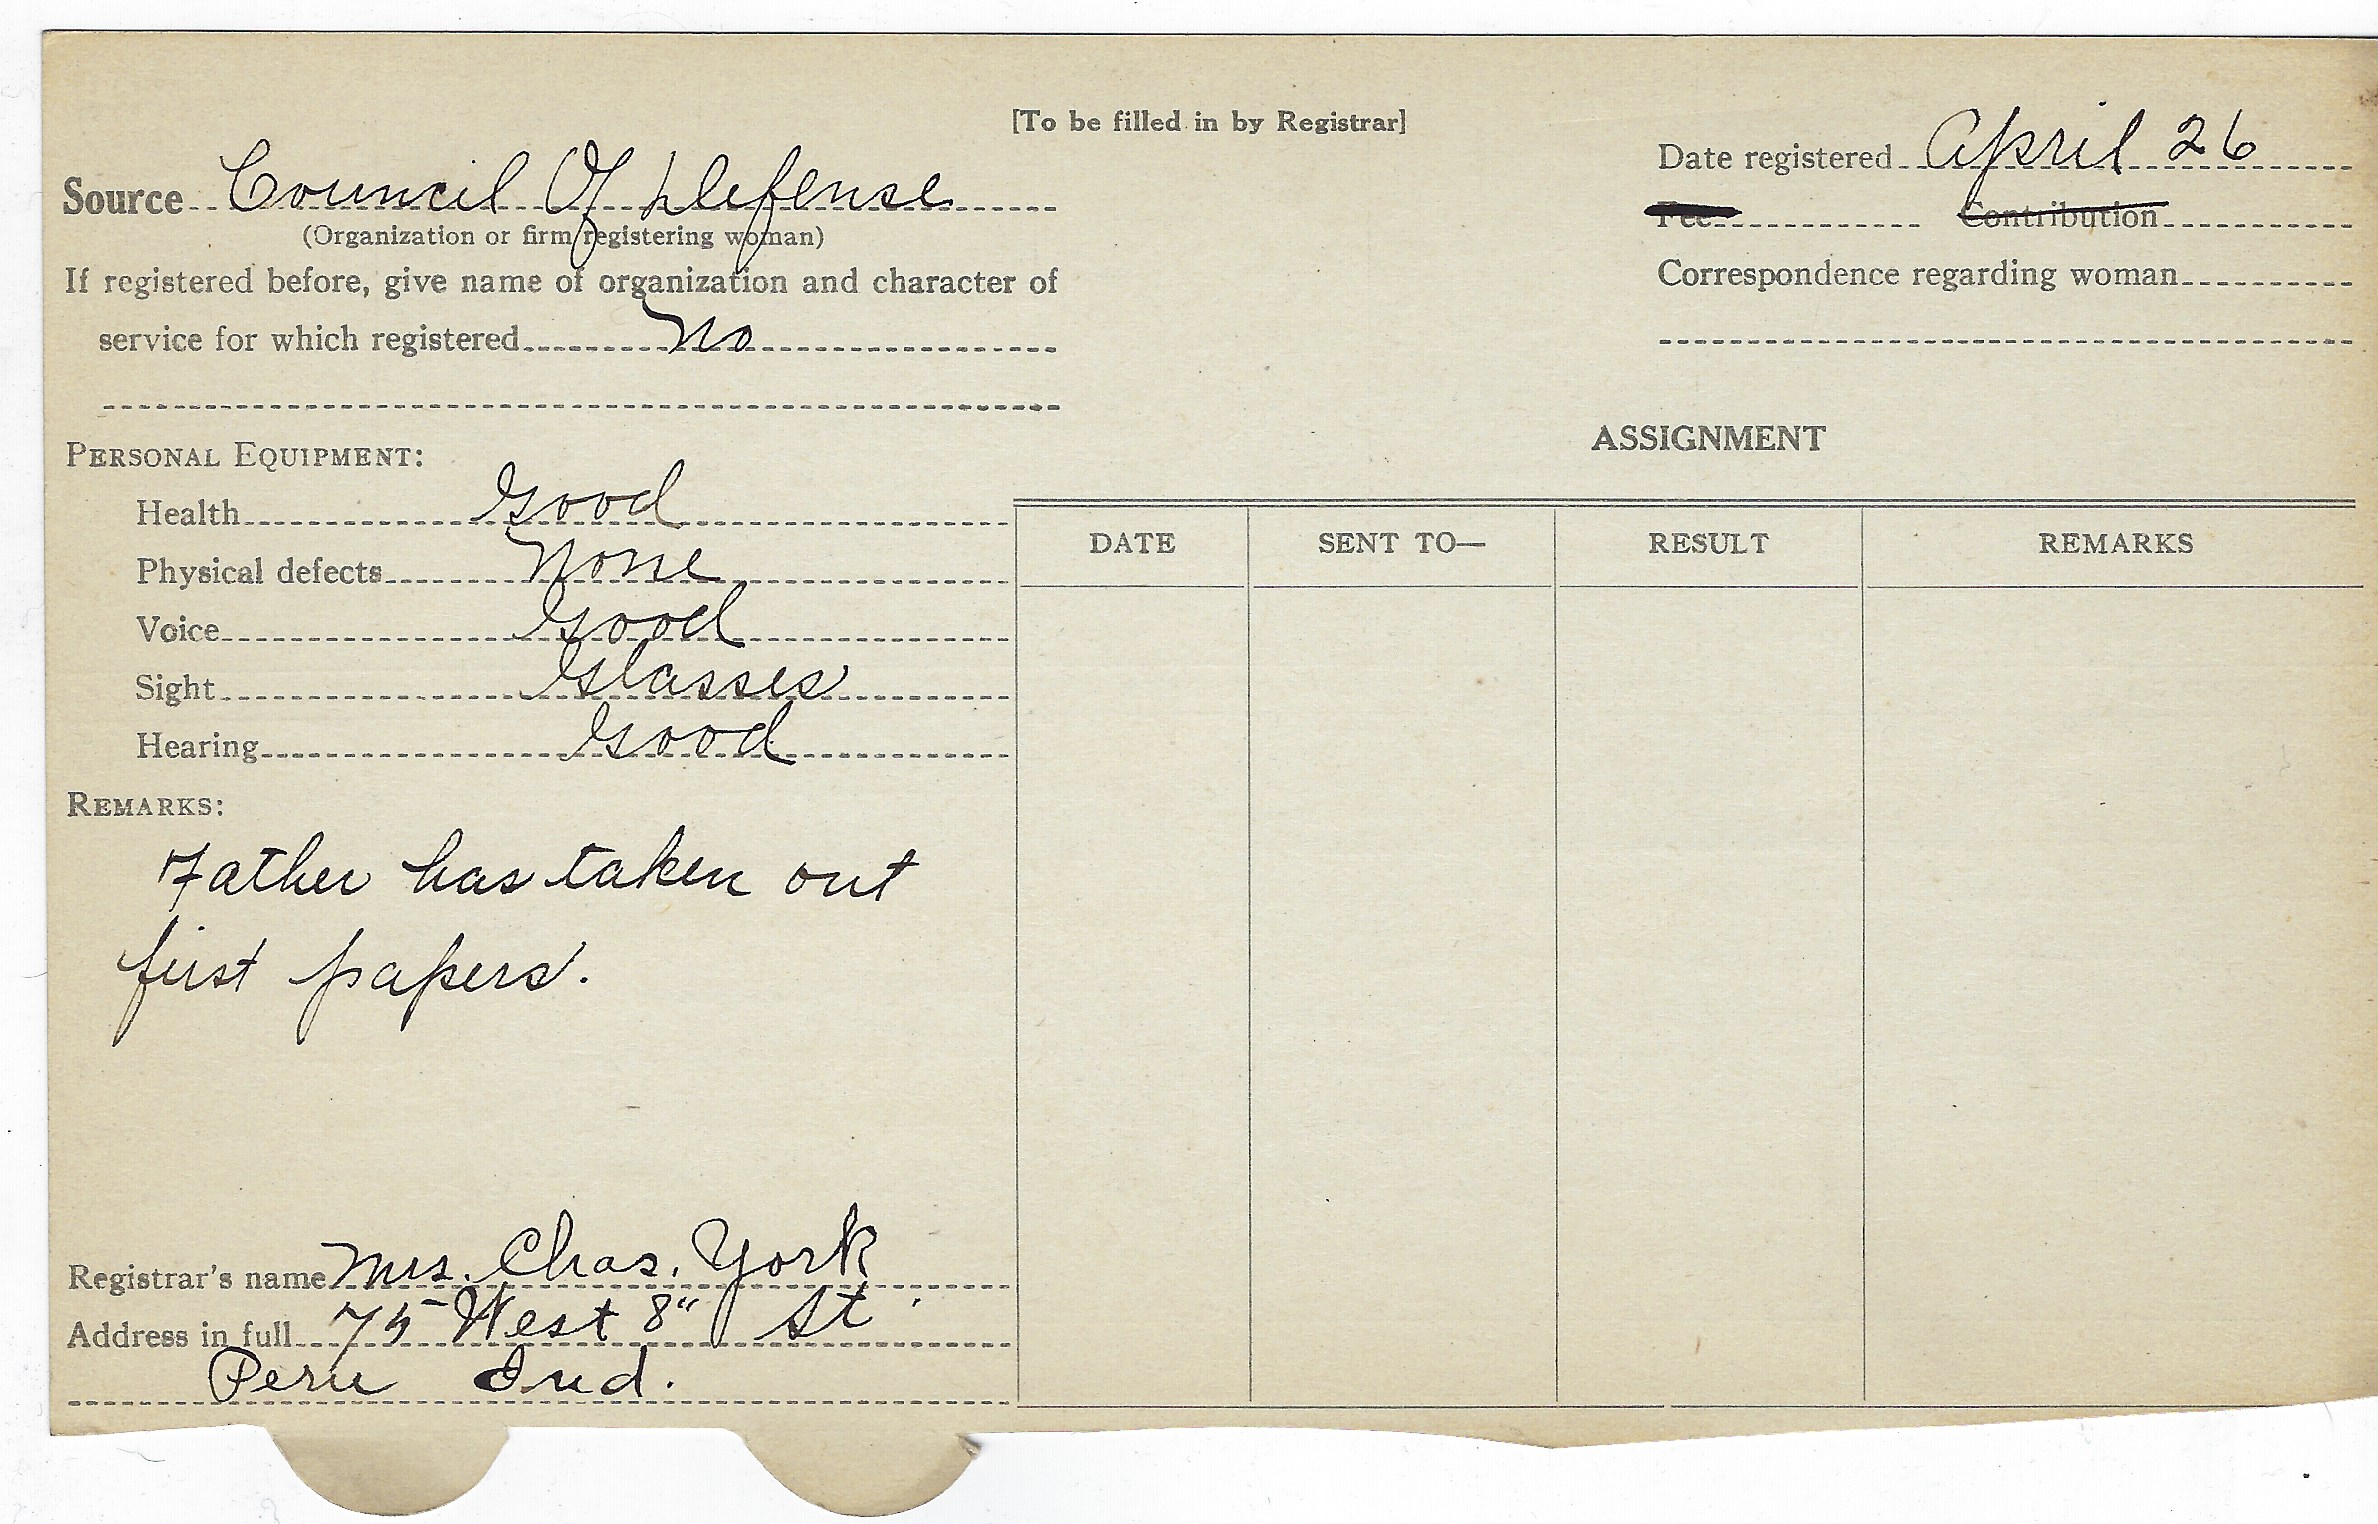 [To be filled in by Registrar]
Source Council Of Defense
(Organization or firm registering woman)
If registered before, give name of organization and character of
service for which registered No
Date registered April 26
Fee Contribution
Correspondence regarding woman
PERSONAL EQUIPMENT:
Health Good
Physical defects None
Voice Good
Sight Glasses
Hearing Good
REMARKS:
Father has taken out
first papers.
Registrar's name Mrs. Chas. York
Address in full 75 West 8" St.
Peru Ind.
ASSIGNMENT
DATE SENT TO— RESULT REMARKS